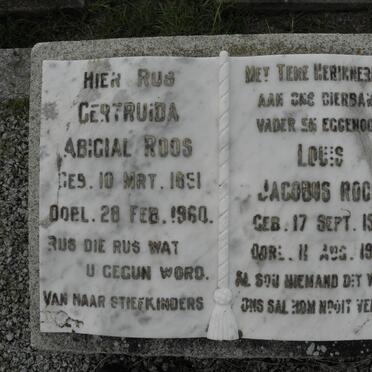 HIER RUS
GERTRUIDA
ABIGIAL ROOS
GEB. 10 MRT. 1891
OORL. 28 FEB. 1960.
RUS DIE RUS WAT
U GEGUN WORD.
VAN HAAR STIEFKINDERS
MET TERE HERINNER
AAN ONS DIERBAR
VADER EN EGGENOO
LOUIS
JACOBUS ROO
GEB. 17 SEPT. 1
OORL. 11 AUG. 1
AL SOU NIEMAND DIT
ONS SAL HOM NOOIT VE